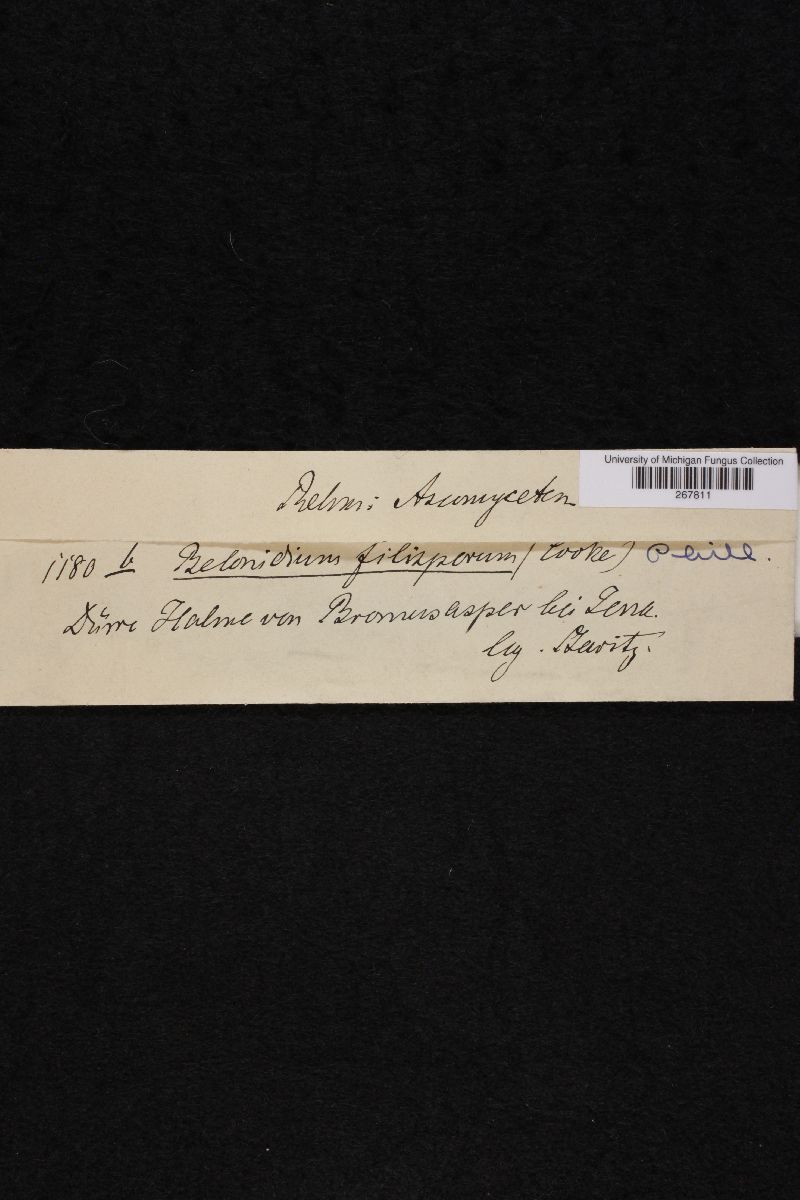 University of Michigan Fungus Collection
267811
Rehm: Ascomyceten
1180 b Belonidium filisporum (Cooke) Phill.
Dürre Halme von Bromus asper bei Jena.
leg.